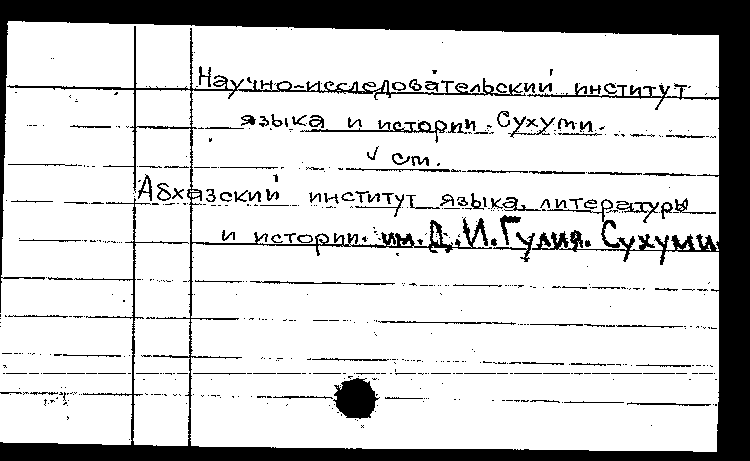 Научно-исследовательский институт
языка и истории. Сухуми.
√ см.
Абхазский институт языка, литературы
и истории. им. Д.И.Гулия. Сухуми.